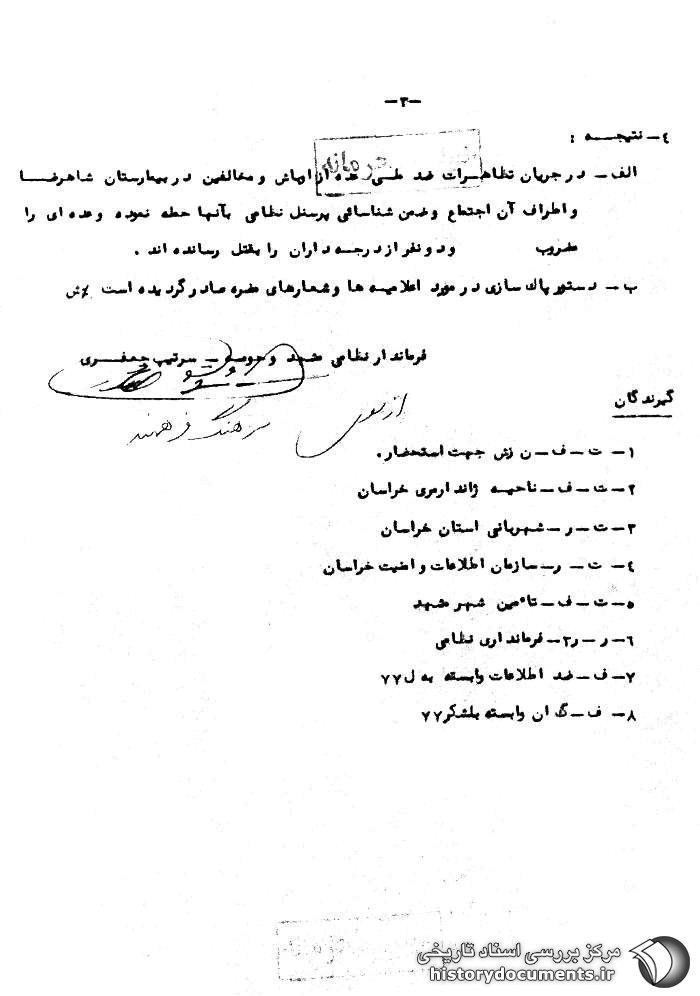 -۳-
٤- نتیجـــه :
محرمانه
الف- در جریان تظاهـرات ضد ملـــی عده از اوباش و مخالفین در بیمارستان شاهرضــا
و اطراف آن اجتماع و ضمن شناسائی پرسنل نظامی بآنها حمله نموده و عده ای را
مضروب ودو نفر از درجـه داران را بقتل رسانده اند .
ب- دستور پاك سازی در مورد اعلامیـه ها و شعارهای مضره صادر گردیده است
فرماندار نظامی مشهد و حومه - سرتیپ جعفـــری
از سوی
سرهنگ فرهمند
گیرندگان
۱- ت-ف-ن زش جهت استحضار.
۲-ت-ف-ناحیـه ژاندارمری خراسان
۳-ت-ر-شهربانی استان خراسان
٤- ت- ر-سازمان اطلاعات و امنیت خراسان
۵-ت-ف-تاٴمین شهر مشهد
۶-ر-ر۳-فرمانداری نظامی
۷-ف-ضد اطلاعات وابسته به ل۷۷
۸- ف-گ ان وابسته بلشکر۷۷
مرکز بررسی اسناد تاریخی
historydocuments.ir